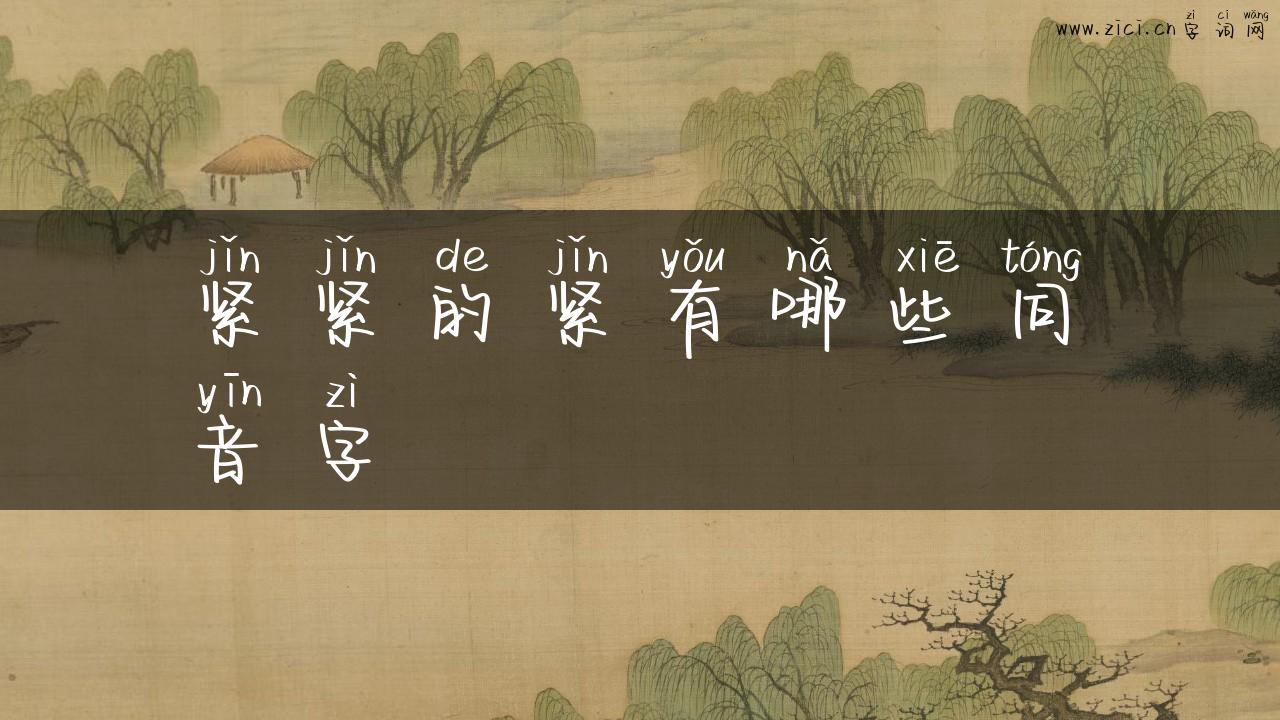 zì cí wǎng
www.zici.cn字词网
jǐn jǐn de jǐn yǒu nǎ xiē tóng
紧紧的紧有哪些同
yīn zì
音字